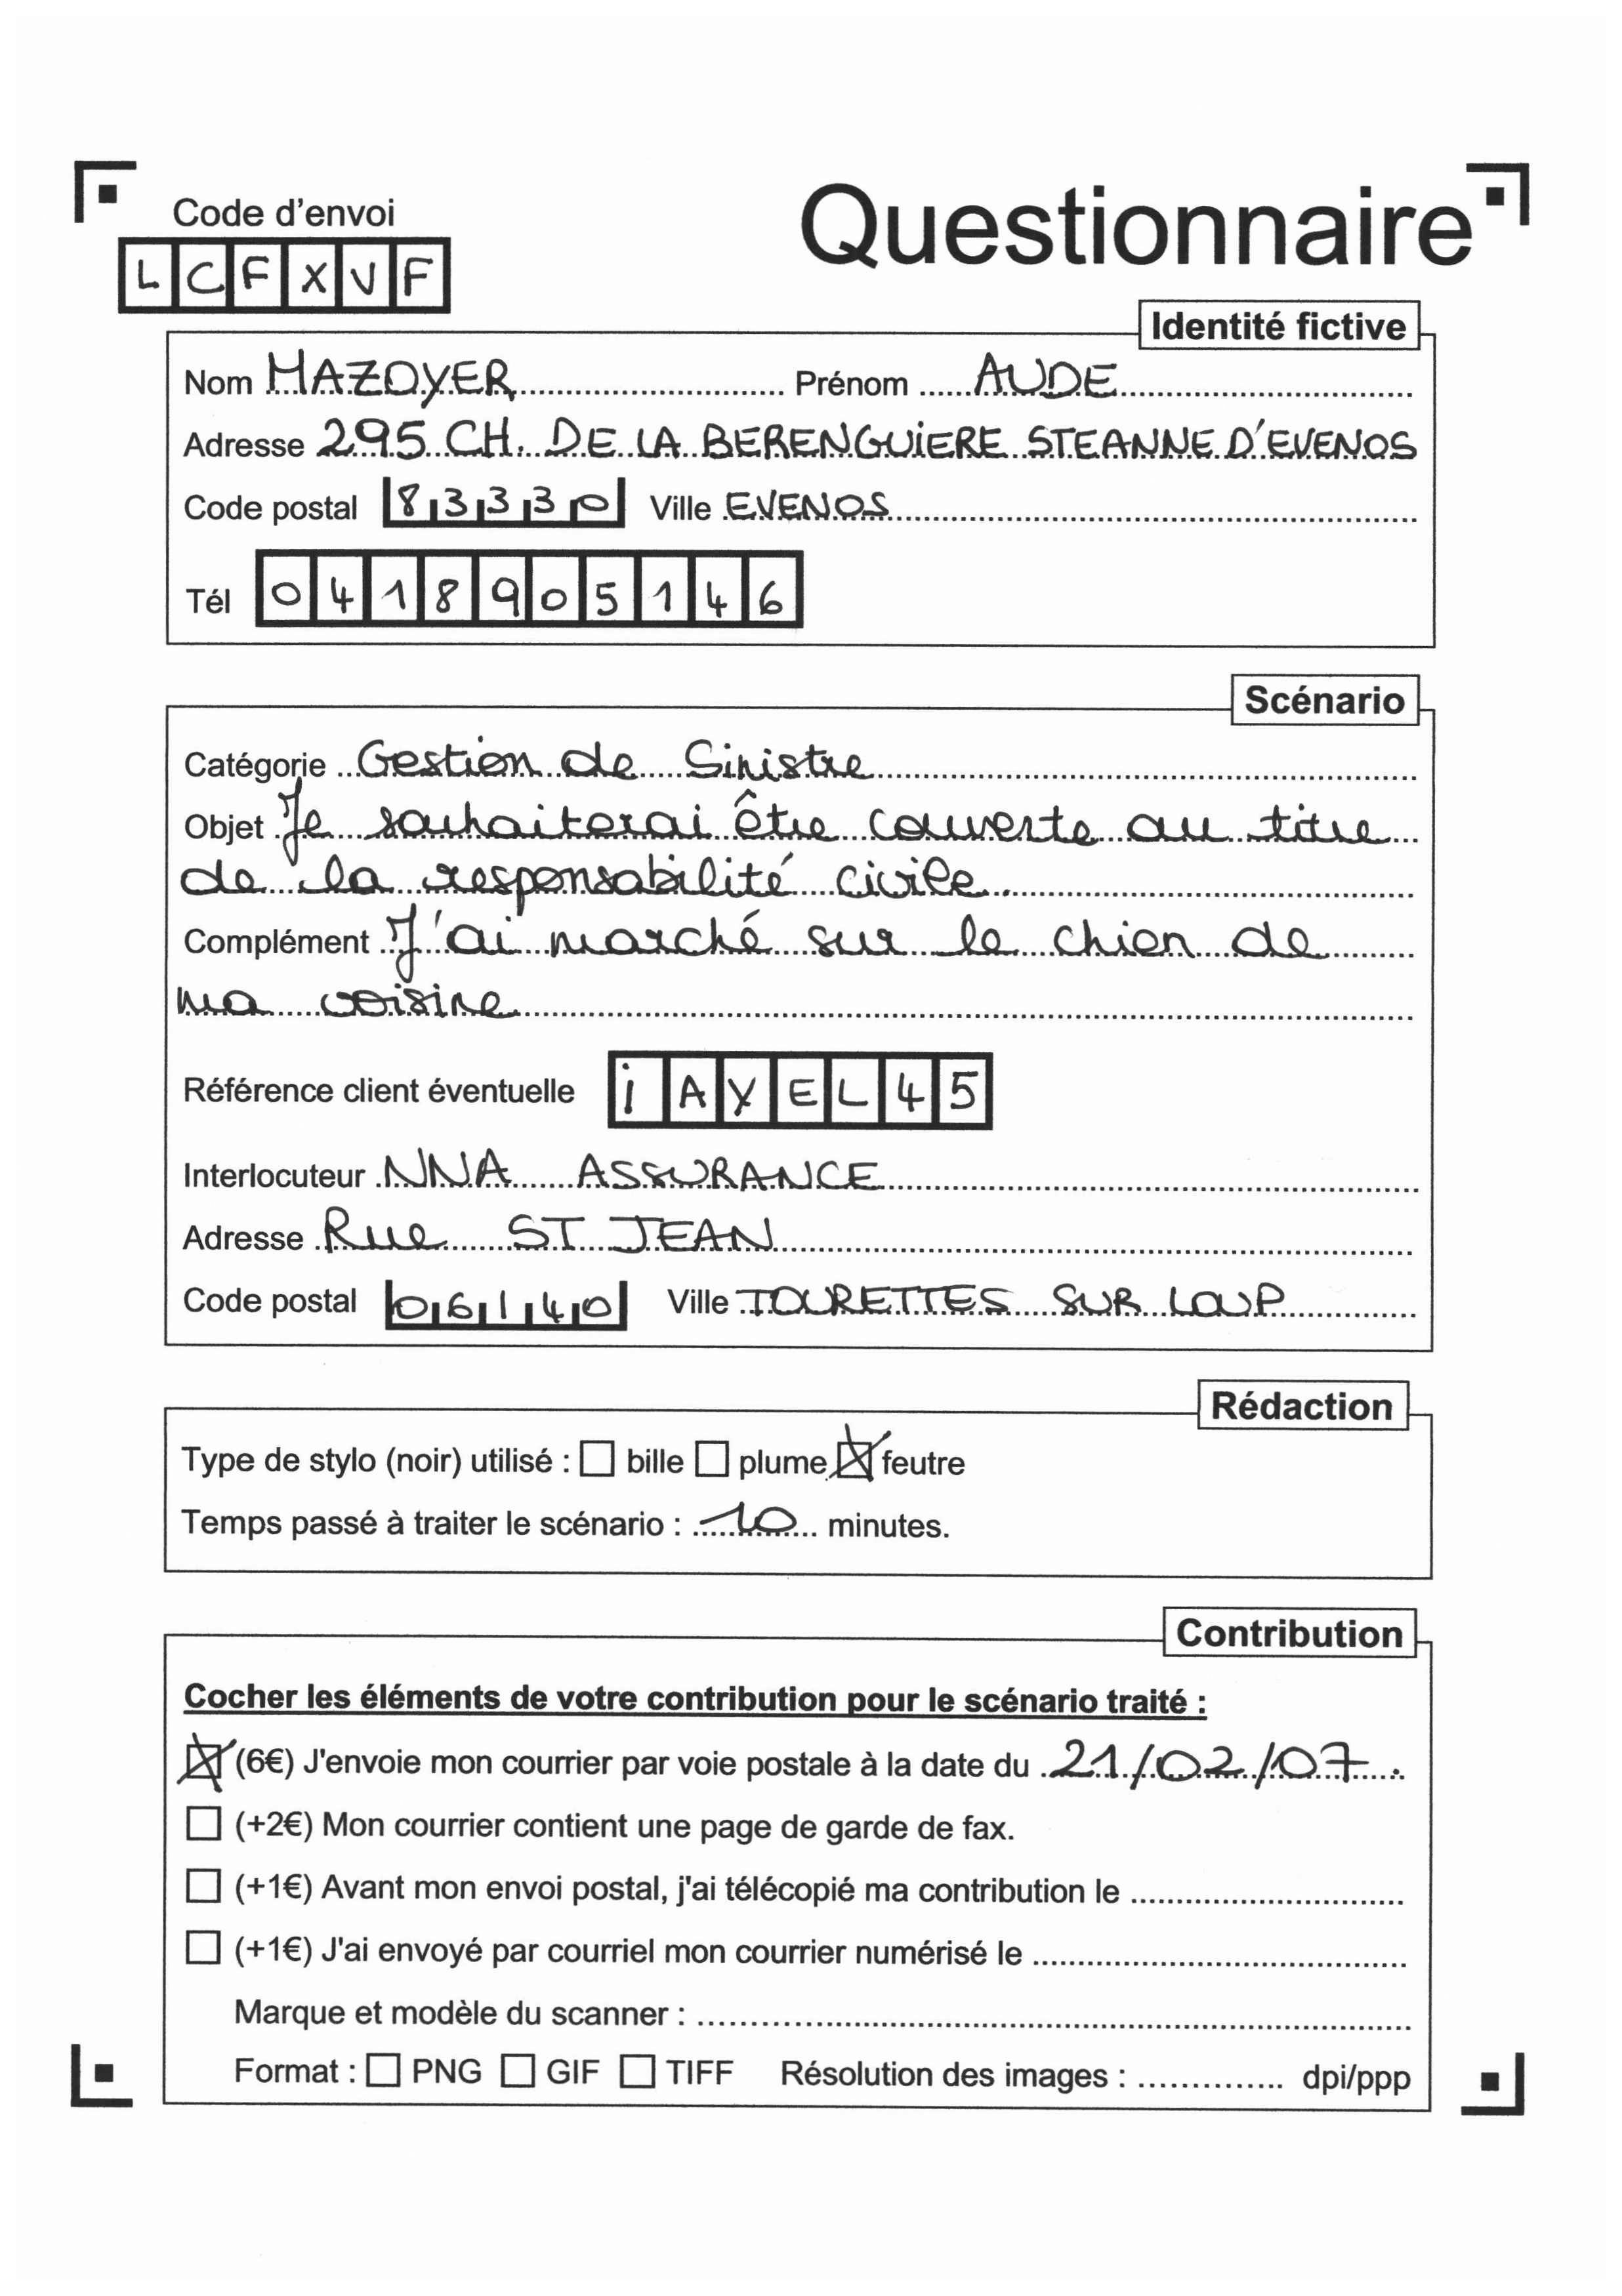 Code d'envoi
LCFXVF
Questionnaire
Identité fictive
Nom MAZOYER Prénom AUDE
Adresse 295 CH. DE LA BERENGUiERE STEANNE D'EVENOS
Code postal 83330 Ville EVENOS
Tél 0418905146
Scénario
Catégorie Gestion de Sinistre
Objet Je souhaiterai être couverte au titre
de la responsabilité civile.
Complément J'ai marché sur le chien de
ma voisine
Référence client éventuelle iAYEL45
Interlocuteur NNA ASSURANCE
Adresse Rue ST JEAN
Code postal 06140 Ville TOURETTES SUR LOUP
Rédaction
Type de stylo (noir) utilisé : bille plume feutre
Temps passé à traiter le scénario : 10 minutes.
Contribution
Cocher les éléments de votre contribution pour le scénario traité :
(6€) J'envoie mon courrier par voie postale à la date du 21/02/07.
(+2€) Mon courrier contient une page de garde de fax.
(+1€) Avant mon envoi postal, j'ai télécopié ma contribution le
(+1€) J'ai envoyé par courriel mon courrier numérisé le
Marque et modèle du scanner :
Format : PNG GIF TIFF Résolution des images : dpi/ppp